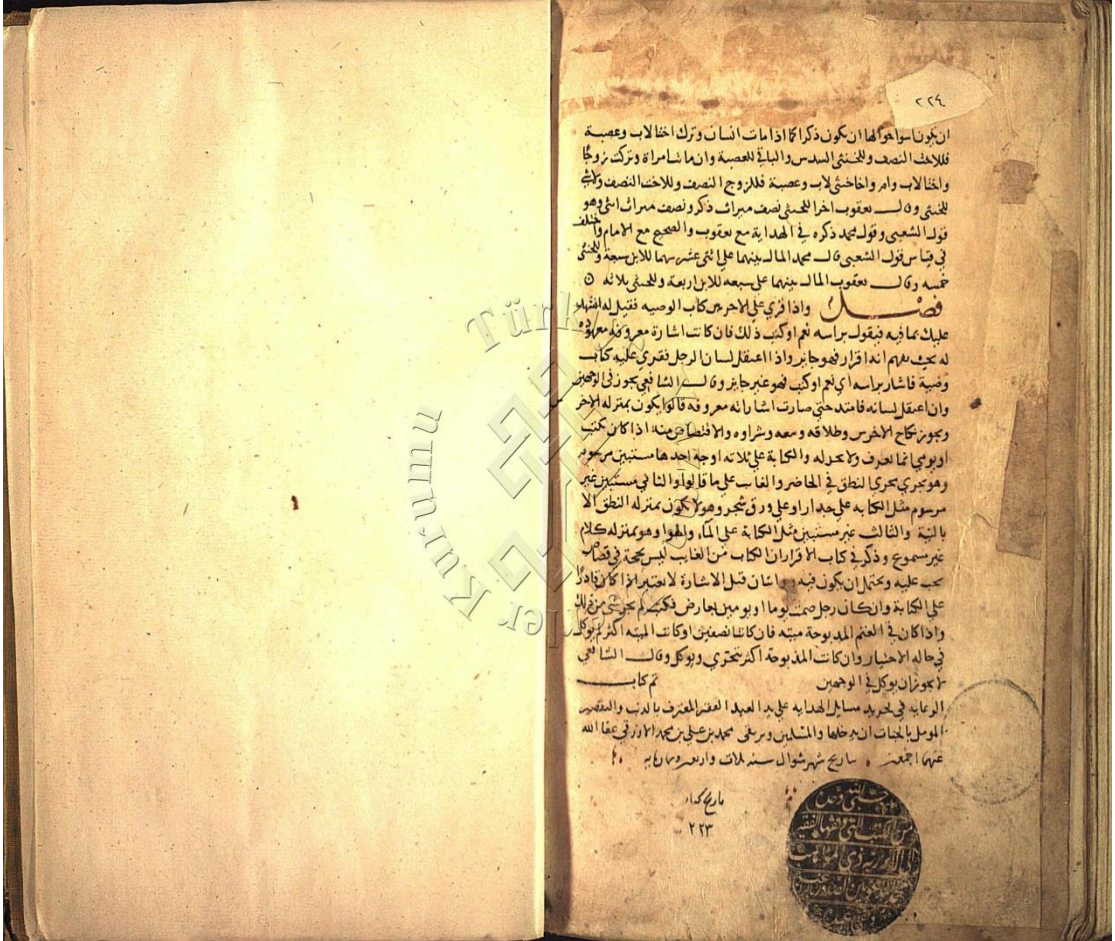 ٢٢٤
ان يكون اسوا حوالها ان يكون ذكرا كما اذا مات انسان وترك اختا لاب وعصبة
فللاخت النصف وللخنثى السدس والباقي للعصبة وان ماتت امراة وتركت زوجا
واختا لاب وام واخا خنثى لاب وعصبة فللزوج النصف وللاخت النصف ولا شي
للخنثى وقال يعقوب اخرا للخنثى نصف ميراث ذكر ونصف ميراث انثى وهو
قول الشعبي وقول محمد ذكره في الهداية مع يعقوب والصحيح مع الامام واختلف
في قياس قول الشعبي قال محمد المال بينهما على اثنى عشر سهما للابن سبعة وللخنثى
خمسه وقال يعقوب المال بينهما على سبعه للابن اربعة وللخنثى ثلاثه
فصل واذا قري على الاخرس كتاب الوصيه فقيل له انشهد
عليك بما فيه فيقول براسه نعم او كتب ذلك فان كانت اشارة معروفه معهوده
له بحيث يفهم انه اقرار فهو جايز واذا اعتقل لسان الرجل فقري عليه كتاب
وصية فاشار براسه اي نعم او كتب فهو غير جايز وقال الشافعي يجوز في الوجهين
وان اعتقل لسانه فامتد حتى صارت اشاراته معروفة قالوا يكون بمنزله الاخرس
ويجوز نكاح الاخرس وطلاقه وبيعه وشراوه والاقتصاص منه اذا كان يكتب
او يومي ايما يعرف ولا يحد له والكتابة على ثلاثه اوجه احدها مستبين مرسوم
وهو يجري مجرى النطق في الحاضر والغايب على ما قالوا والثاني مستبين غير
مرسوم مثل الكتابه على جدار او على ورق شجر وهو لا يكون بمنزله النطق الا
بالنية والثالث غير مستبين مثل الكتابة على المآء والهوا وهو بمنزله كلام
غير مسموع وذكر في كتاب الاقرار ان الكتاب من الغايب ليس بحجة في قصاص
يجب عليه ويحتمل ان يكون فيه روايتان قيل الاشارة لا تعتبر اذا كان قادرا
على الكتابة وان كان رجل صمت يوما او يومين لعارض فكتب لم يجز شي من ذلك
واذا كان في الغنم المذبوحة ميته فان كانتا نصفين او كانت الميته اكثر لم يوكل
في حاله الاختيار وان كانت المذبوحة اكثر يتحرى ويوكل وقال الشافعي
لا يجوز ان يوكل في الوجهين تم كتاب
الرعايه في تجريد مسايل الهدايه على يد العبد الفقير المعترف بالذنب والتقصير
المومل بالجنات ان يدخلها والمسلمين ويرتقى محمد بن علي بن محمد الازرقي عفا الله
عنهم اجمعين بتاريخ شهر شوال سنه ثلاث واربعين وثمانمايه
تاريخ كتابه
٢٢٣
Türk Kurumu